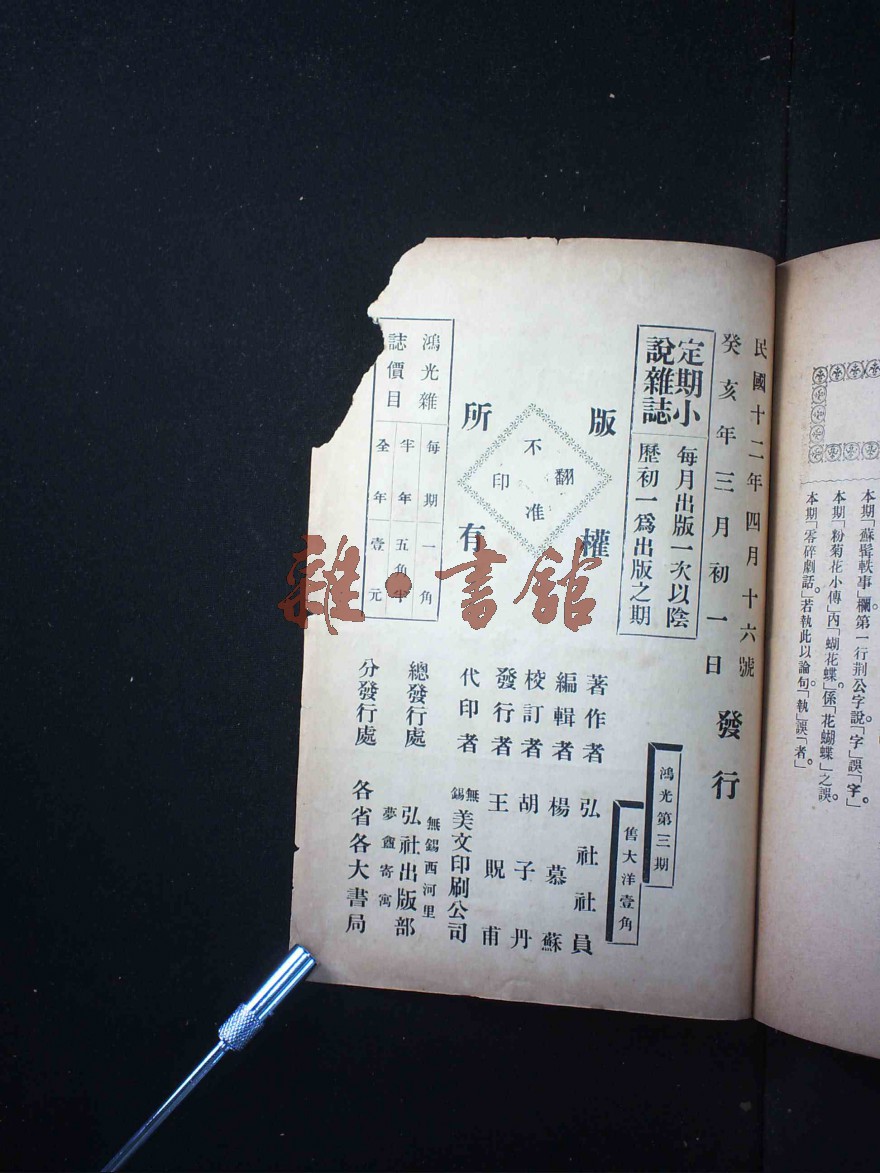 本期「蘇髯軼事」欄。第一行荆公字說「字」誤「字」。
本期「粉菊花小傳」內「蝴花蝶」係「花蝴蝶」之誤。
本期「零碎劇話」若執此以論句「執」誤「者」。
民國十二年四月十六號
癸亥年三月初一日
發行
定期小
說雜誌
每月出版一次以陰
歷初一爲出版之期
版權
所有
不准
翻印
鴻光雜
誌價目
每期一角
半年五角半
全年壹元
鴻光第三期
舊大洋壹角
著作者 弘社社員
編輯者 楊慕蘇
校訂者 胡子丹
發行者 王貺甫
代印者 無錫美文印刷公司
總發行處 無錫西河里
弘社出版部
夢盦寄寓
分發行處 各省各大書局
雜·書館